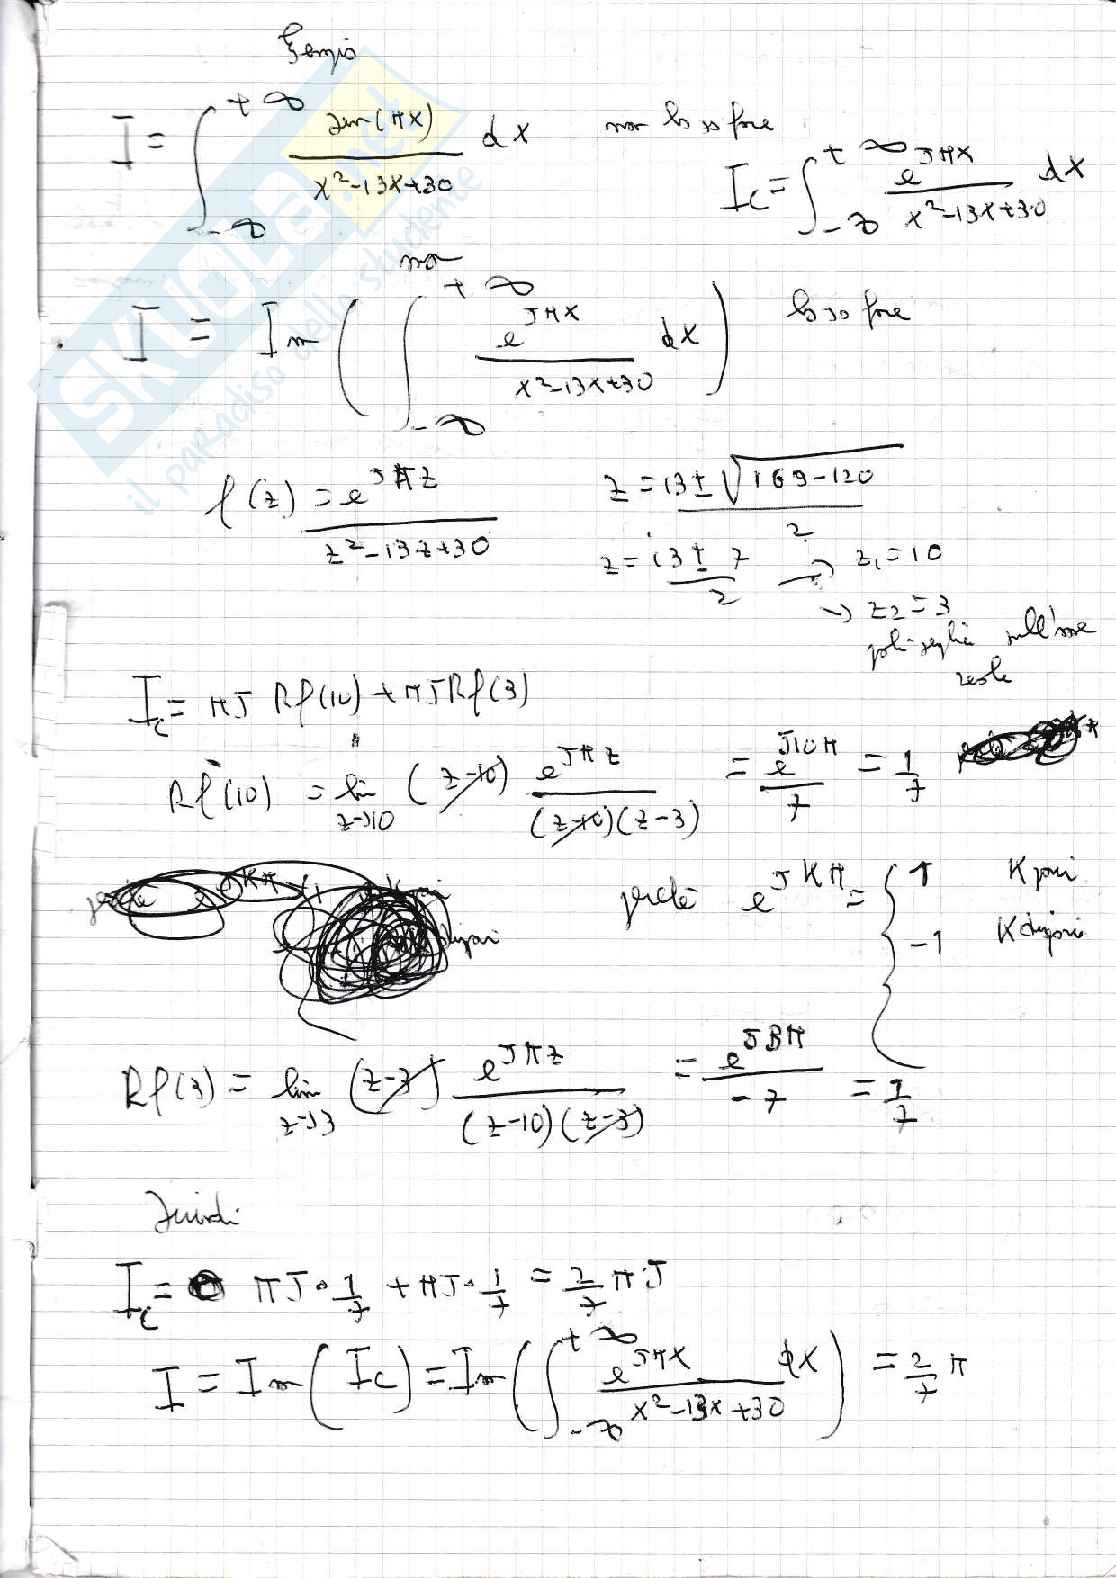 Esempio
I = ∫_{-∞}^{+∞} sen(πx) / (x²-13x+30) dx non lo so fare
I_c = ∫_{-∞}^{+∞} e^{Jπx} / (x²-13x+30) dx
non
I = Im ( ∫_{-∞}^{+∞} e^{Jπx} / (x²-13x+30) dx ) lo so fare
f(z) = e^{Jπz} / (z²-13z+30) z = 13 ± √(169-120) / 2
z = 13 ± 7 / 2 → z₁ = 10
→ z₂ = 3
poli semplici sull'asse
reale
I_c = πJ Rf(10) + πJ Rf(3)
Rf(10) = lim_{z→10} (z-10) e^{Jπz} / ((z-10)(z-3)) = e^{J10π} / 7 = 1/7
perché e^{JKπ} = { 1 K pari
-1 K dispari
Rf(3) = lim_{z→3} (z-3) e^{Jπz} / ((z-10)(z-3)) = e^{J3π} / -7 = 1/7
Quindi
I_c = πJ · 1/7 + πJ · 1/7 = 2/7 πJ
I = Im ( I_c ) = Im ( ∫_{-∞}^{+∞} e^{Jπx} / (x²-13x+30) dx ) = 2/7 π
SKUOLA.net
il paradiso dello studente